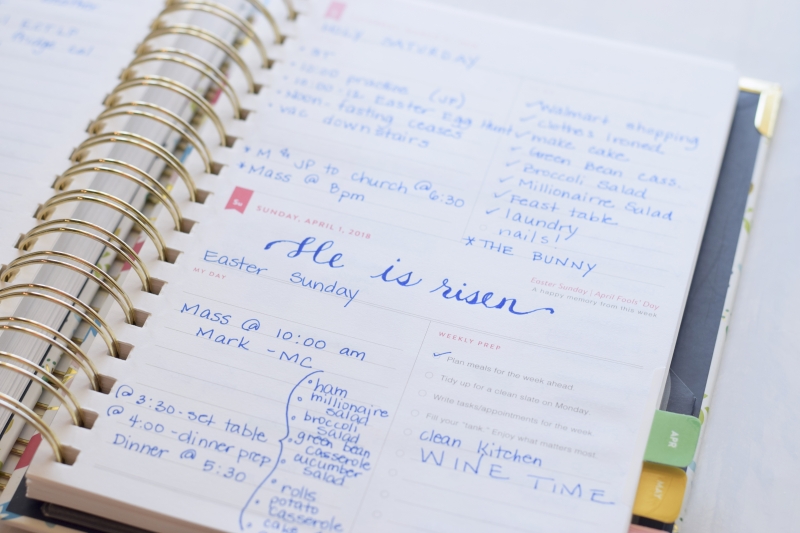 HOLY SATURDAY
10:00 practice (JP)
Easter Egg Hunt
Noon- fasting ceases
vac downstairs
* M & JP to church @ 6:30
* Mass @ 8pm
✓ Walmart shopping
✓ clothes ironed
✓ make cake
✓ Green Bean cass.
✓ Broccoli Salad
✓ Millionaire Salad
✓ Feast table
✓ laundry
nails!
* THE BUNNY
Su
SUNDAY, APRIL 1, 2018
He is risen
Easter Sunday
Easter Sunday | April Fools' Day
A happy memory from this week
MY DAY
Mass @ 10:00 am
Mark - MC
@ 3:30 - set table
@ 4:00 - dinner prep
Dinner @ 5:30
• ham
• millionaire
salad
• broccoli
salad
• green bean
casserole
• cucumber
salad
• rolls
• potato
casserole
• cake
WEEKLY PREP
✓ Plan meals for the week ahead
Tidy up for a clean slate on Monday
Write tasks/appointments for the week
Fill your "tank." Enjoy what matters most.
clean kitchen
WINE TIME
APR
MAY